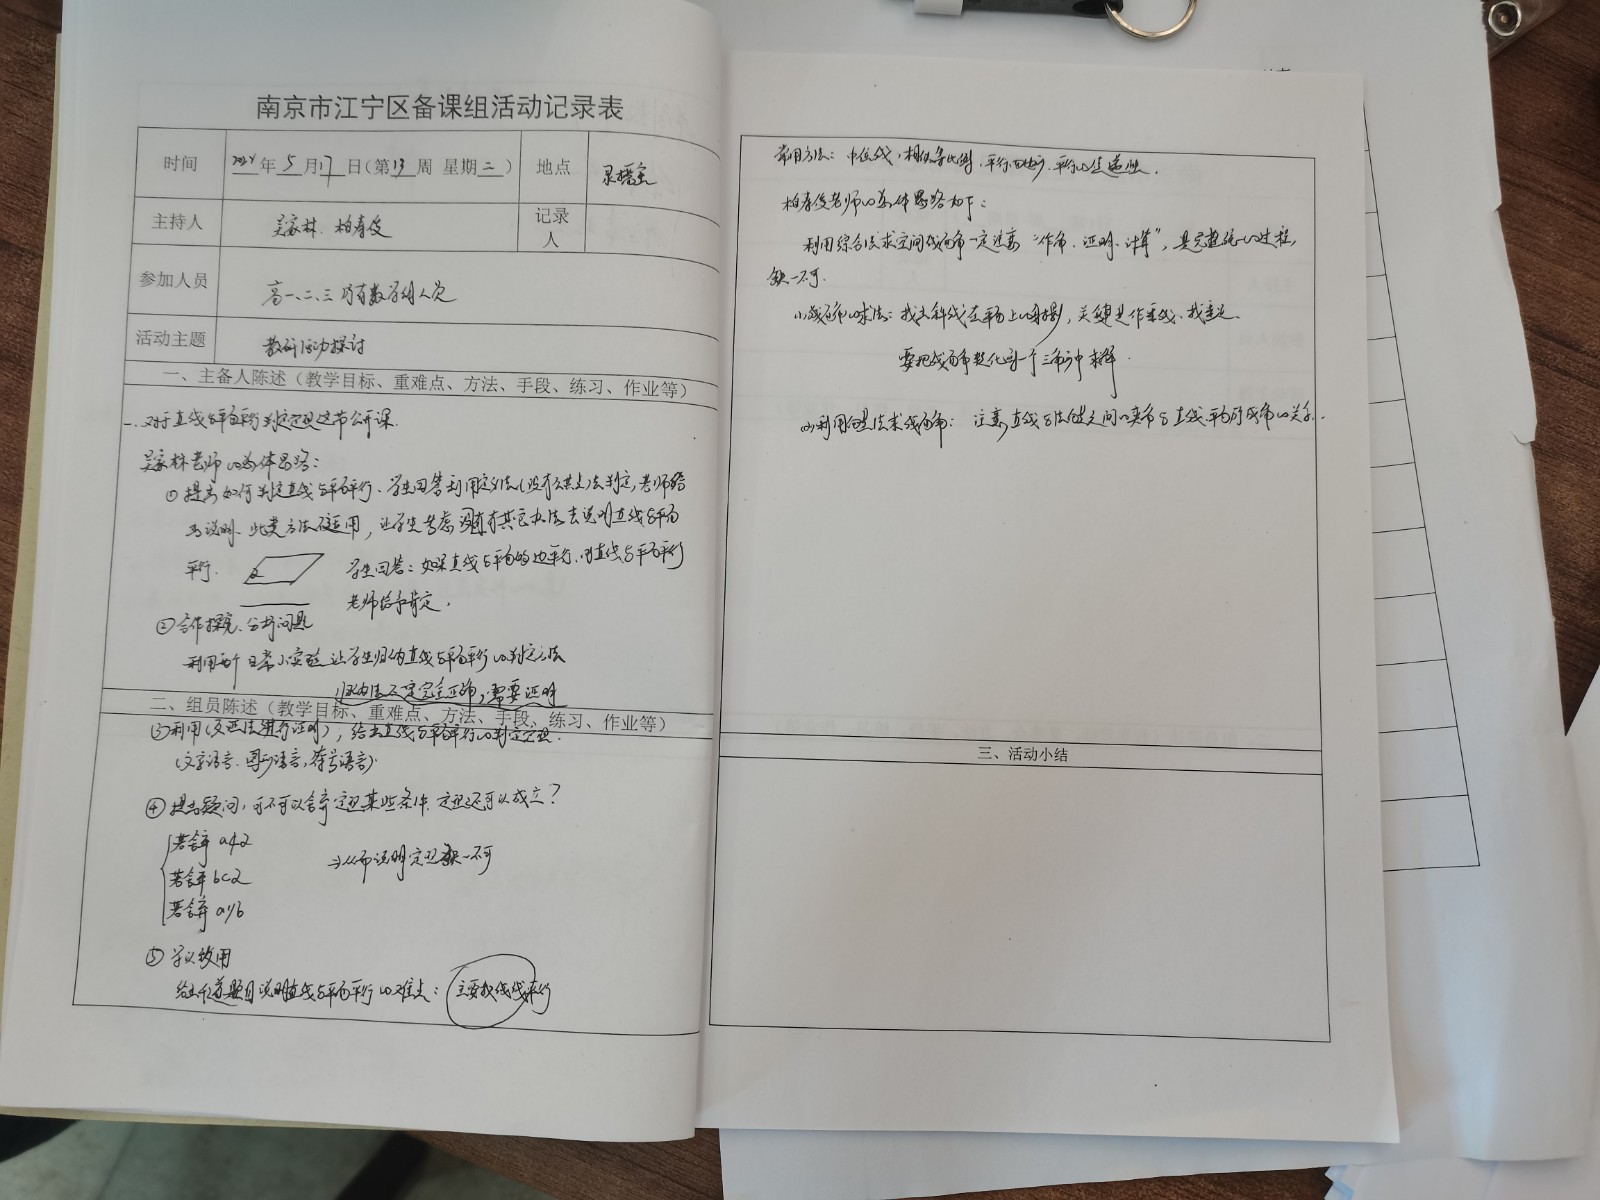 南京市江宁区备课组活动记录表
时间 年 5 月 17 日(第 13 周 星期 二 ) 地点 录播室
主持人 吴家林、柏春俊 记录人
参加人员 高一、二、三 所有数学组人员
活动主题 教研活动探讨
一、主备人陈述（教学目标、重难点、方法、手段、练习、作业等）
一、对于直线与平面平行判定定理这节公开课.
吴家林老师的总体思路：
① 提出如何判定直线与平面平行、学生回答利用定义法(没有交点)去判定,老师给
出说明、此类方法不适用，让学生考虑有没有其它办法去说明直线与平面
平行. 学生回答：如果直线与平面的边平行,则直线与平面平行
老师给予肯定.
② 合作探究、分析问题
利用两个日常小实验让学生归纳直线与平面平行的判定方法
归纳法不一定完全正确，需要证明
二、组员陈述（教学目标、重难点、方法、手段、练习、作业等）
③ 利用(反证法进行证明)，给出直线与平面平行的判定定理.
(文字语言、图形语言,符号语言).
④ 提出疑问，可不可以舍弃定理某些条件,定理还可以成立？
若舍弃 a⊄α
若舍弃 b⊂α ⇒从而说明定理缺一不可
若舍弃 a∥b
⑤ 学以致用
给出几道题目说明直线与平面平行的难点：主要找线线平行
常用方法：中位线，相似等比例，平行四边形、平行的传递性.
柏春俊老师的总体思路如下：
利用综合法求空间线面角一定注意“作角、证明、计算”，是完整统一的过程,
缺一不可.
(1)线面角的求法：找出斜线在平面上的射影，关键是作垂线、找垂足.
要把线面角转化到一个三角形中求解.
(2)利用向量法求线面角： 注意直线与法向量之间的夹角与直线、平面所成角的关系.
三、活动小结